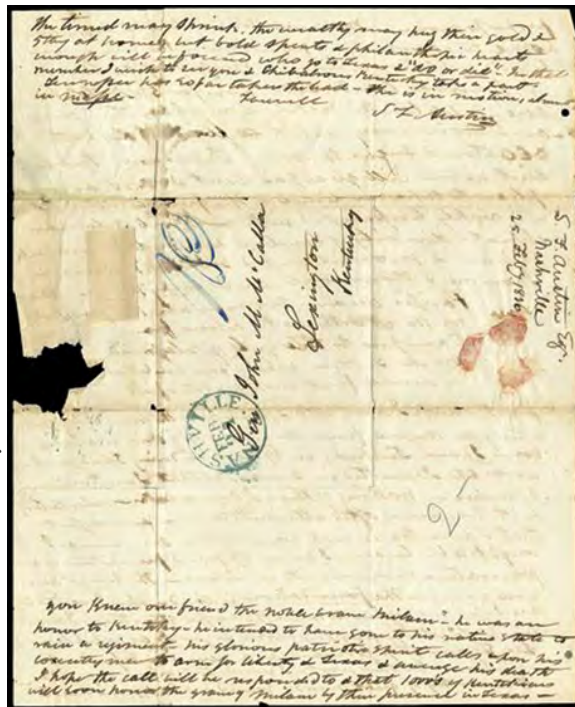 The timid may shrink, the wealthy may hug their gold &
stay at home, but bold spirits & philanthropic hearts
enough will be found who go to Texas to "do or die". In that
number I wish to see you & Chivalrous Kentucky take a part
Tennessee has so far taken the lead - She is in motion, almost
in
Farewell
S F Austin
Gen John M McCalla
Lexington
Kentucky
NASHVILLE
FEB
S. F. Austin Esq.
Nashville
25 Feby 1836
2
you knew our friend the noble brave Milam - he was an
honor to Kentucky - he intended to have gone to his native state to
raise a regiment - his glorious patriotic spirit calls upon his
countrymen to arm for liberty & Texas & avenge his death
I hope the call will be responded to & that 1000s of Kentuckians
will soon honor the grave of Milam by their presence in Texas -